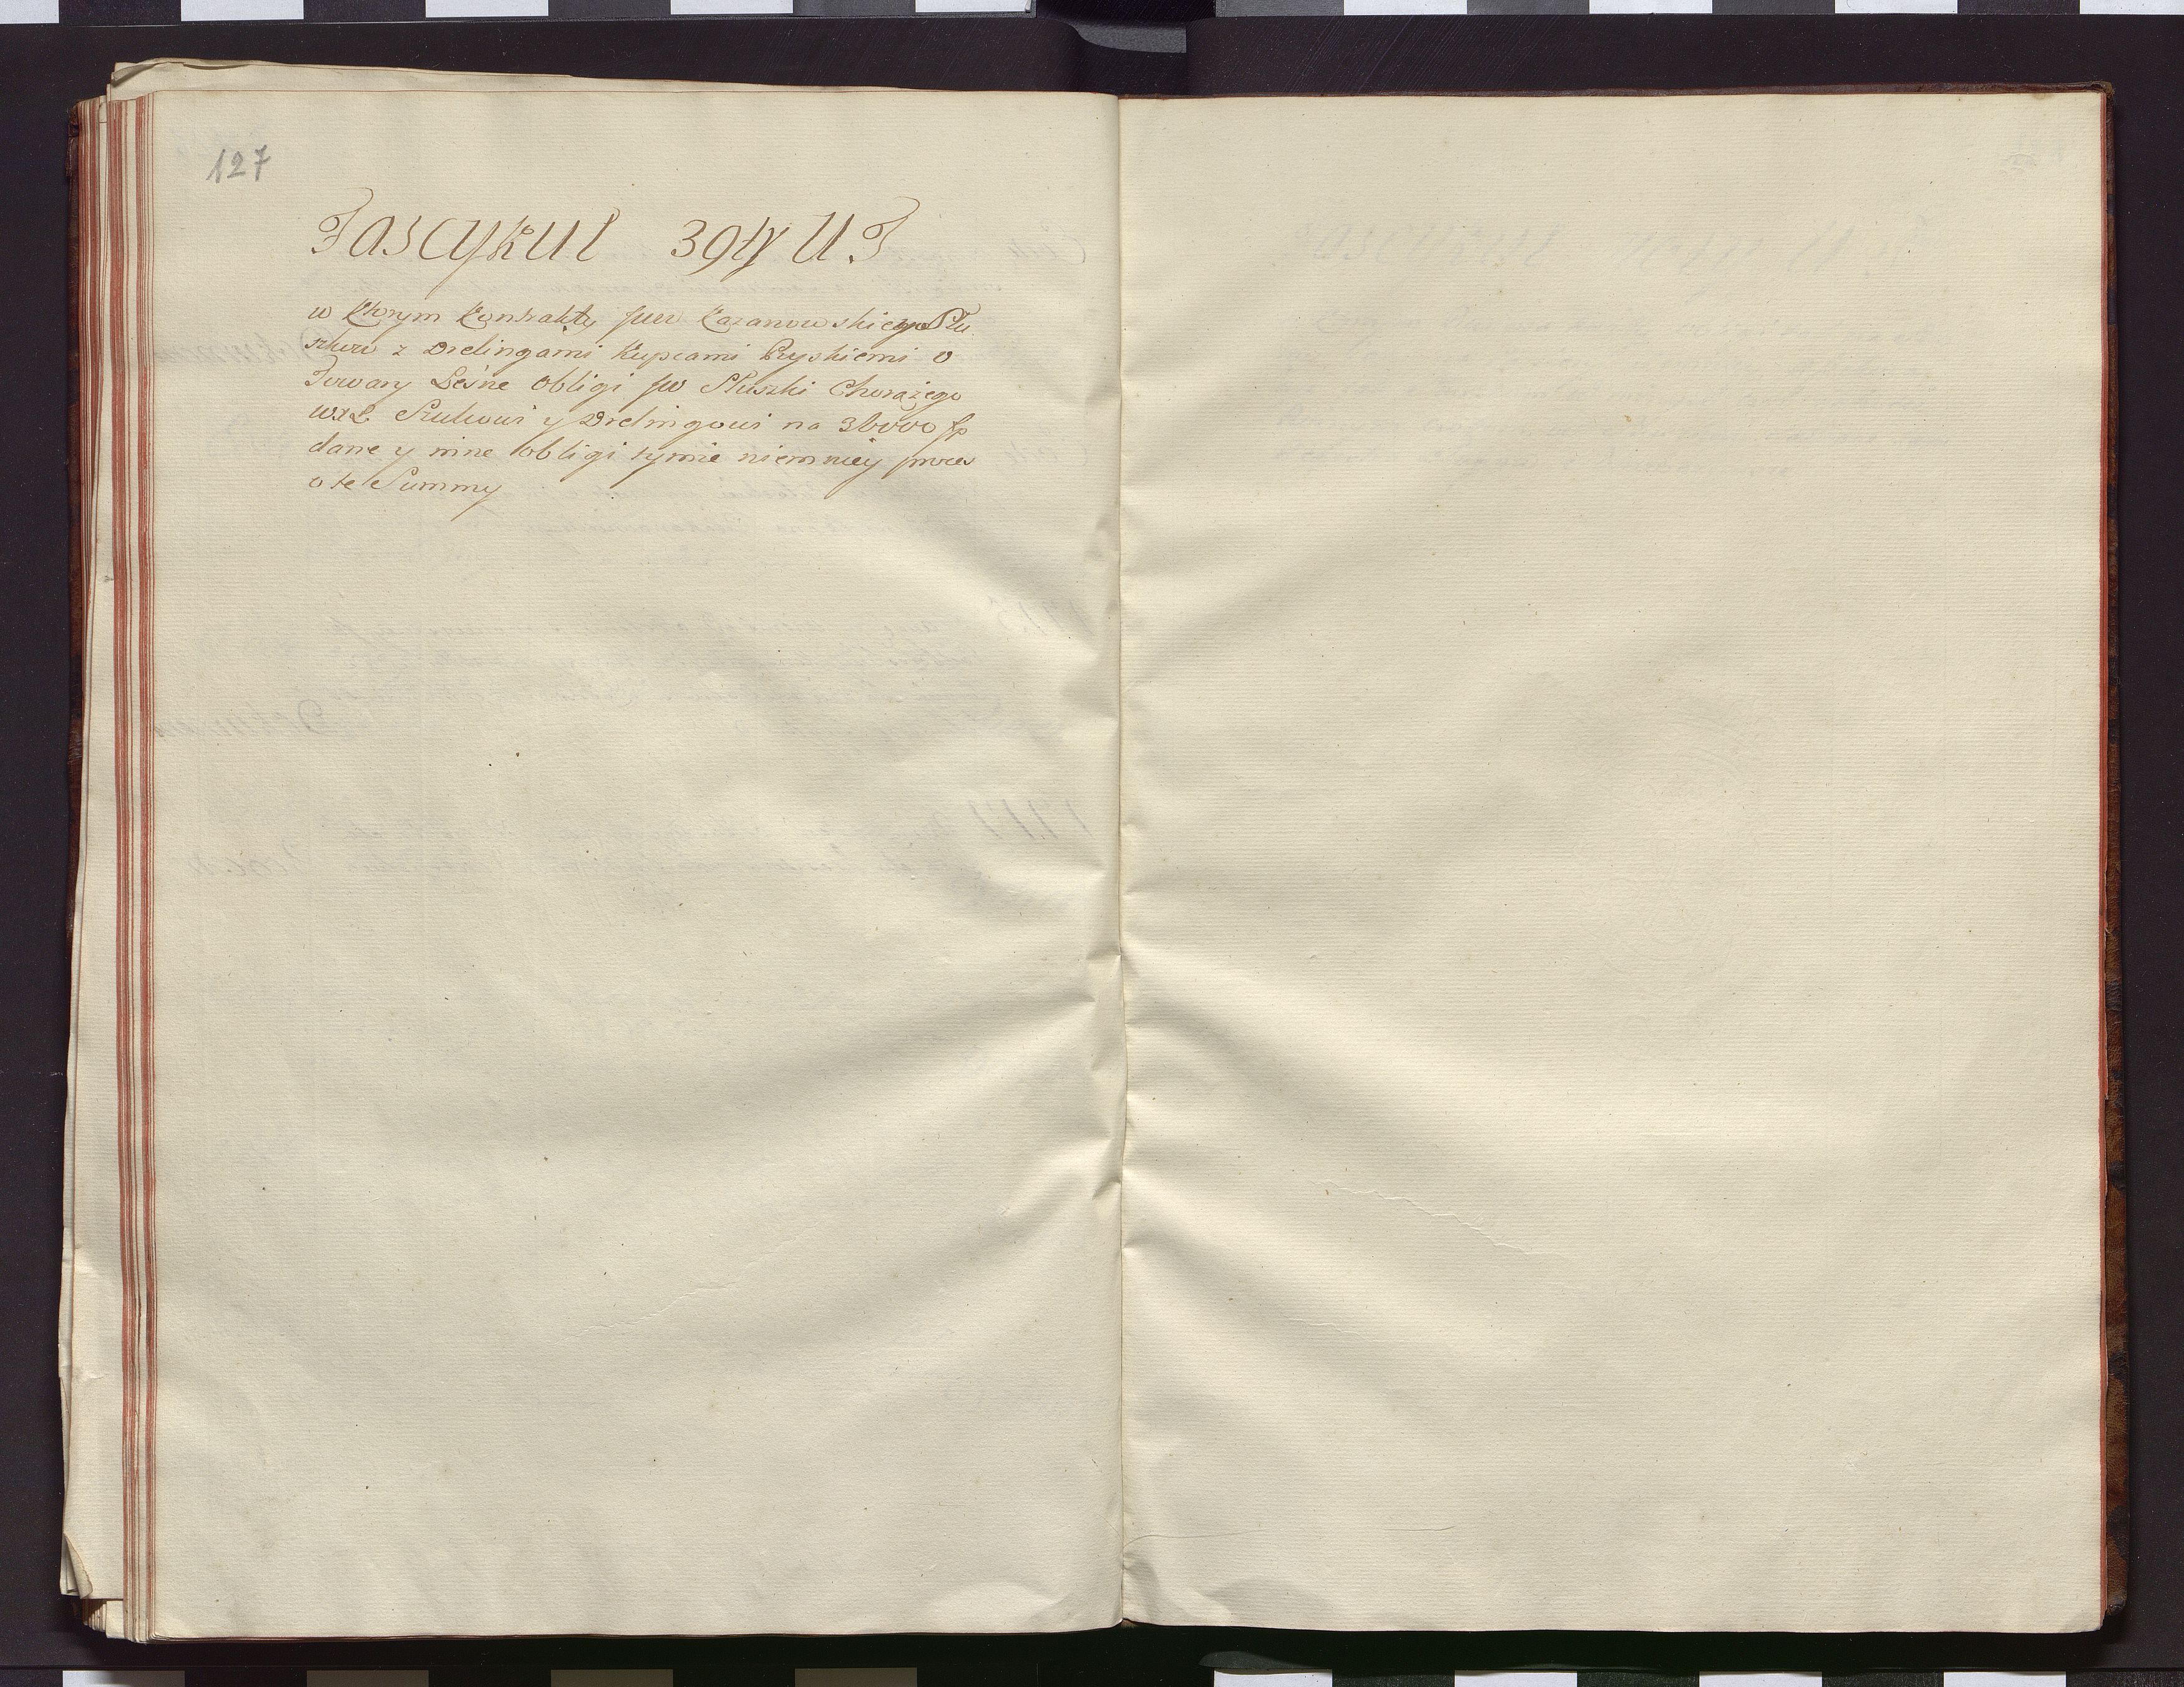 127
Fascykul 39ty U.T
w Ktorym Kontrakty JWW Kazanowskiego Słu
szkow z Drelingami Kupcami Ryskiemi o
Towary Leśne obligi JW Słuszki Chorążego
WXL Szulcowi y Drelingowi na 36000 fp
dane y inne obligi tymże niemniey proces
o te Summy